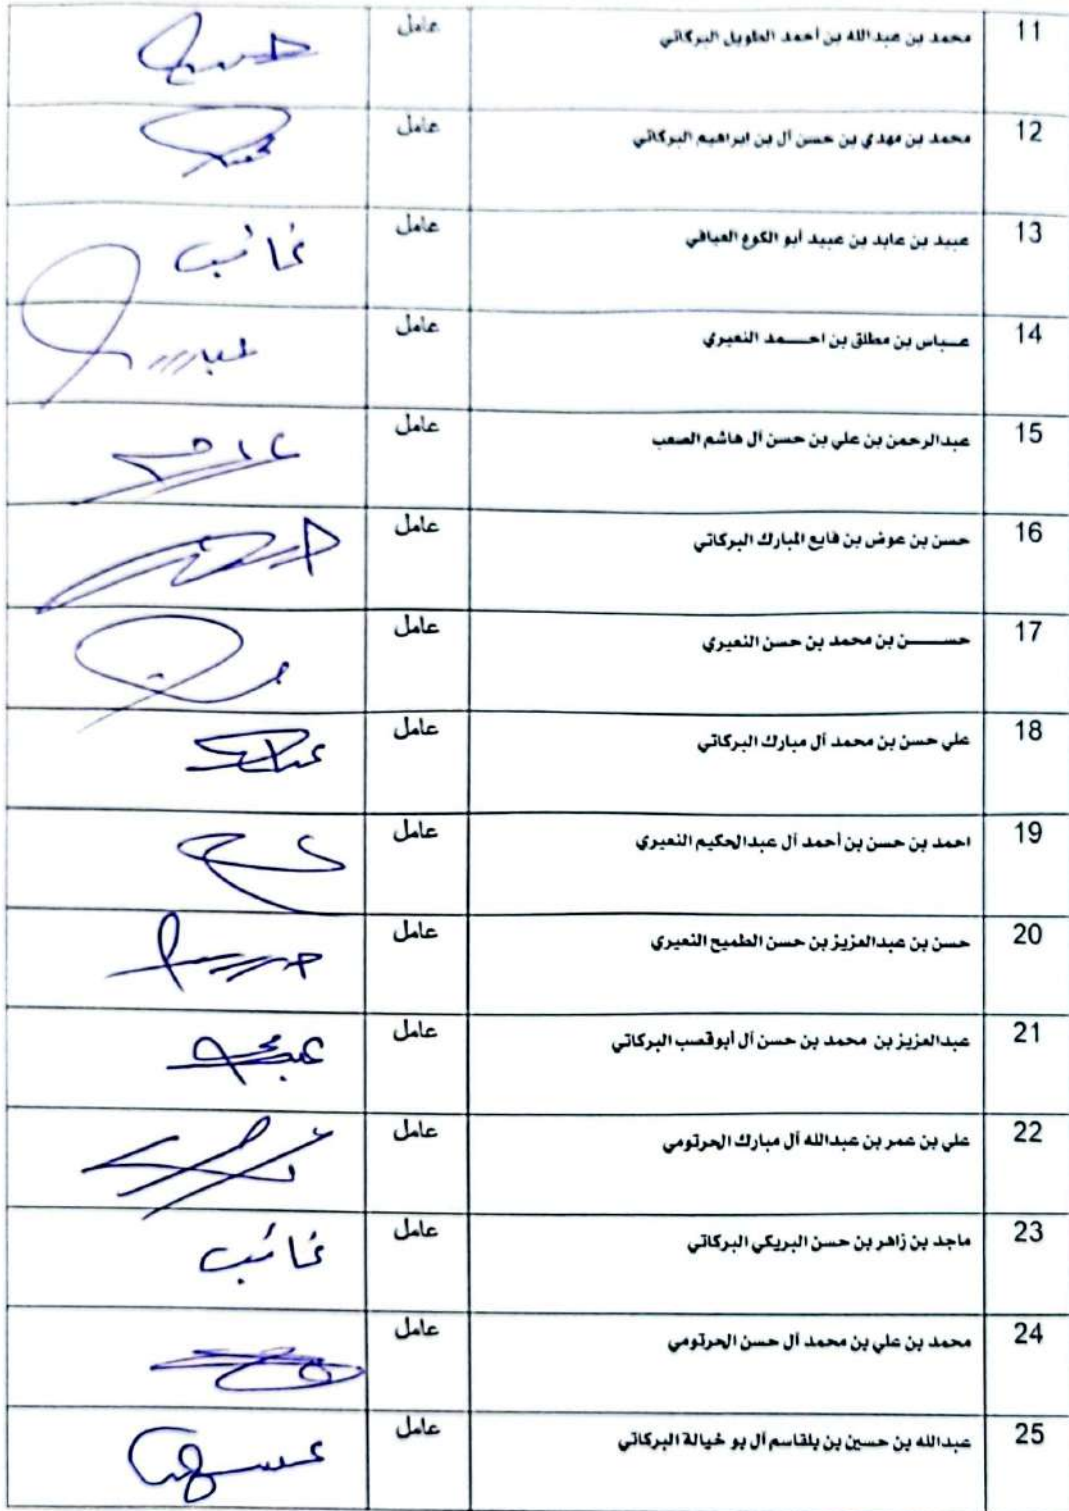 11 محمد بن عبدالله بن أحمد الطويل البركاتي عامل
12 محمد بن مهدي بن حسن آل بن ابراهيم البركاتي عامل
13 عبيد بن عابد بن عبيد أبو الكوع العيافي عامل غائب
14 عباس بن مطلق بن احمد النعيري عامل
15 عبدالرحمن بن علي بن حسن آل هاشم الصعب عامل
16 حسن بن عوض بن فايع المبارك البركاتي عامل
17 حسن بن محمد بن حسن النعيري عامل
18 علي حسن بن محمد آل مبارك البركاتي عامل
19 احمد بن حسن بن أحمد آل عبدالحكيم النعيري عامل
20 حسن بن عبدالعزيز بن حسن الطميح النعيري عامل
21 عبدالعزيز بن محمد بن حسن آل أبوقصب البركاتي عامل
22 علي بن عمر بن عبدالله آل مبارك الحرتومي عامل
23 ماجد بن زاهر بن حسن البريكي البركاتي عامل غائب
24 محمد بن علي بن محمد آل حسن الحرتومي عامل
25 عبدالله بن حسين بن بلقاسم آل بو خيالة البركاتي عامل